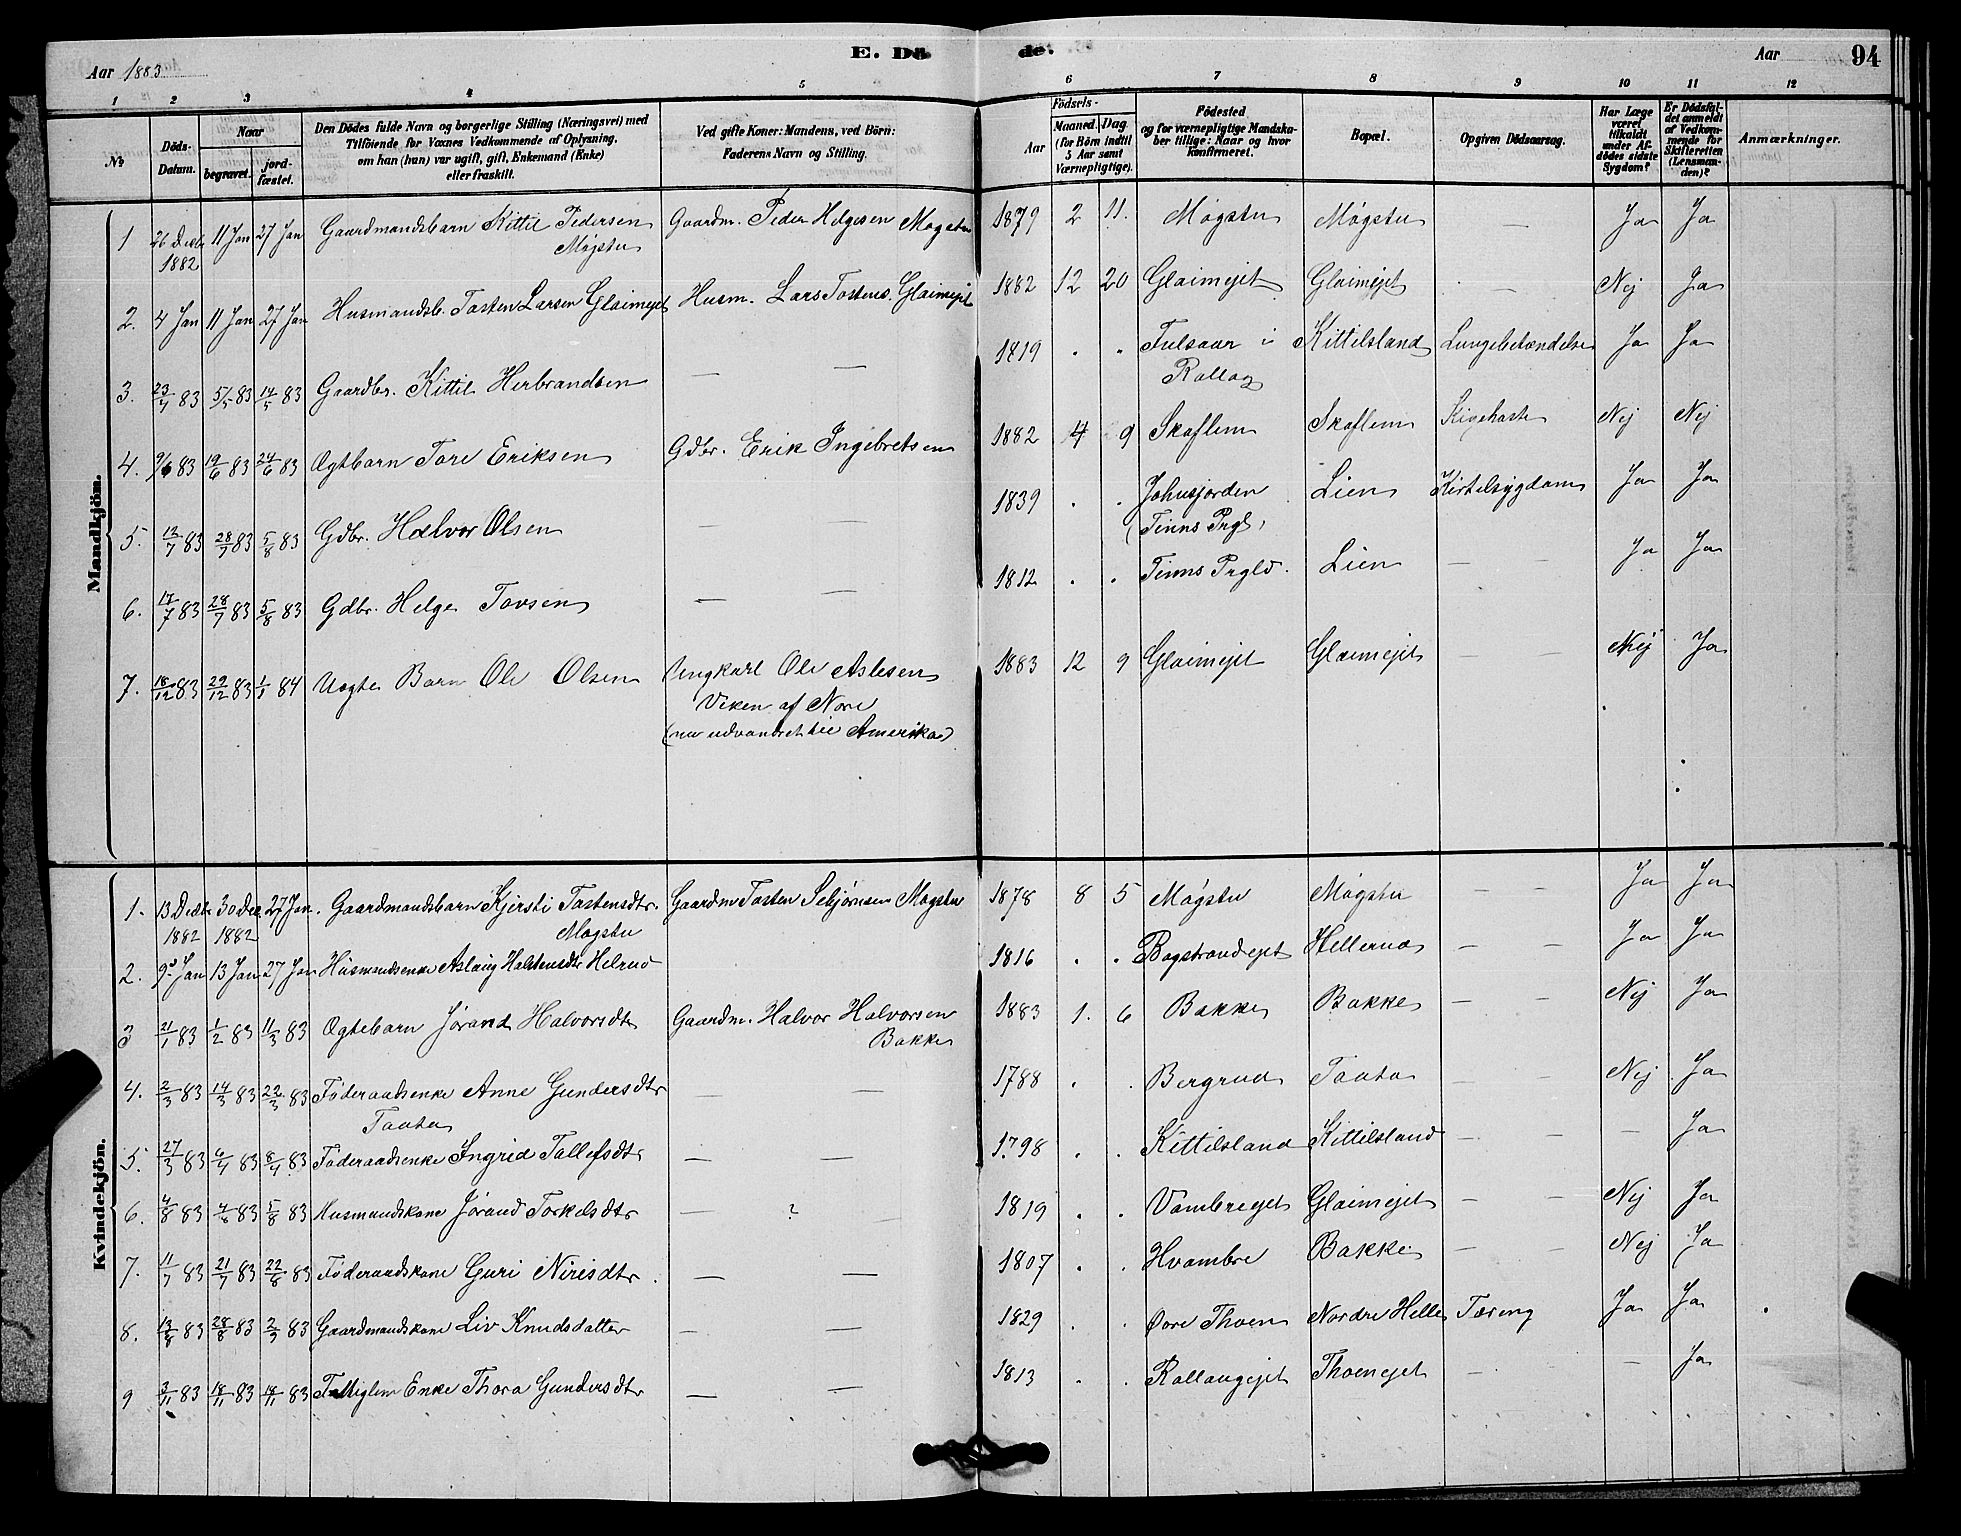 Aar 1883
E. Dö de.
Aar
94
1 2 3 4 5 6 7 8 9 10 11 12
No
Döds-Datum.
Naar begravet. jordfæstet.
Den Dödes fulde Navn og borgerlige Stilling (Næringsvei) med Tilföiende for Voxnes Vedkommende af Oplysning, om han (hun) var ugift, gift, Enkemand (Enke) eller fraskilt.
Ved gifte Koner: Mandens, ved Börn: Faderens Navn og Stilling.
Födsels-
Aar Maaned. Dag. (for Börn indtil 5 Aar samt Værnepligtige).
Födested og for værnepligtige Mandskaber tillige: Naar og hvor konfirmeret.
Bopæl.
Opgiven Dödsaarsag.
Har Læge været tilkaldt under Afdödes sidste Sygdom?
Er Dödsfaldet anmeldt af Vedkommende for Skifteretten (Lensmanden)?
Anmærkninger.
Mandkjön.
1 26 Decbr 1882 11 Jan 27 Jan Gaardmandsbarn Kittil Pedersen Møgstu Gaardm. Peder Helgesen Møgstu 1879 2 11. Møgstu Møgstu — Ja Ja
2. 4 Jan 11 Jan 27 Jan Husmandsb. Tosten Larsen Glaimejet Husm. Lars Tostens. Glaimejet 1882 12 20 Glaimejet Glaimejet — Nej Ja
3. 23/4 83 5/5 83 14/5 83 Gaardbr. Kittil Herbrandsen — — 1819 . . Fulsaar i Rollag Kittilsland Lungebetændelse Ja Ja
4. 9/6 83 19/6 83 24/6 83 Ægtbarn Tore Eriksen Gdbr. Erik Ingebretsen 1882 4 9 Skaflem Skaflem Kigehoste Nej Nej
5. 12/7 83 28/7 83 5/8 83 Gdbr. Halvor Olsen — — 1839 . . Johusjorden (Tinns Prgl) Lien Kirtelsygdom Ja Ja
6. 17/7 83 28/7 83 5/8 83 Gdbr. Helge Tovsen — — 1812 . . Tinns Prgld. Lien — — Ja Ja
7. 18/12 83 29/12 83 1/1 84 Uægte Barn Ole Olsen Ungkarl Ole Aslesen Viken af Nore (nu udvandret til Amerika) 1883 12 9 Glaimejet Glaimejet — — Nej Ja
Kvindekjön.
1. 13 Decbr 1882 30 Dec 1882 27 Jan. Gaardmandsbarn Kjersti Tostensdtr. Møgstu Gaardm Tosten Sebjørnsen Møgstu 1878 8 5 Møgstu Møgstu — — Ja Ja
2. 9d Jan 13 Jan 27 Jan Husmandsenke Aslaug Halstensdtr Helrud 1816 . . Bogstrandejet Hellerud — — Ja Ja
3 21/1 83 1/2 83 11/3 83 Ægtebarn Jørand Halvorsdtr Gaardm. Halvor Halvorsen Bakke 1883 1. 6 Bakke Bakke — — Nej Ja
4. 2/3 83 14/3 83 22/3 83 Føderaadsenke Anne Gundersdtr Taata — — 1788 . . Bergrud Taata — — Nej Ja
5. 27/3 83 6/4 83 8/4 83 Føderaadsenke Ingrid Tollefsdtr — — 1798 . . Kittilsland Kittilsland — — — Ja
6. 83 83 5/8 83 Husmandskone Jørand Torkelsdtr — ? — 1819 . . Vambrejet Glaimejet — — Nej Ja
7. 11/7 83 21/7 83 22/8 83 Føderaadskone Guri Nirisdtr. — — 1807 . . Hvambre Bakke — — Nej Ja
8. 13/8 83 28/8 83 2/9 83 Gaardmandskone Liv Knudsdatter — — 1829 . . Øvre Thoen Nordre Helle Tæring Ja Ja
9 3/11 83 18/11 83 18/11 83 Enke Thora Gundersdtr — — 1813 . . Rollaugejet Thoenejet — — Ja